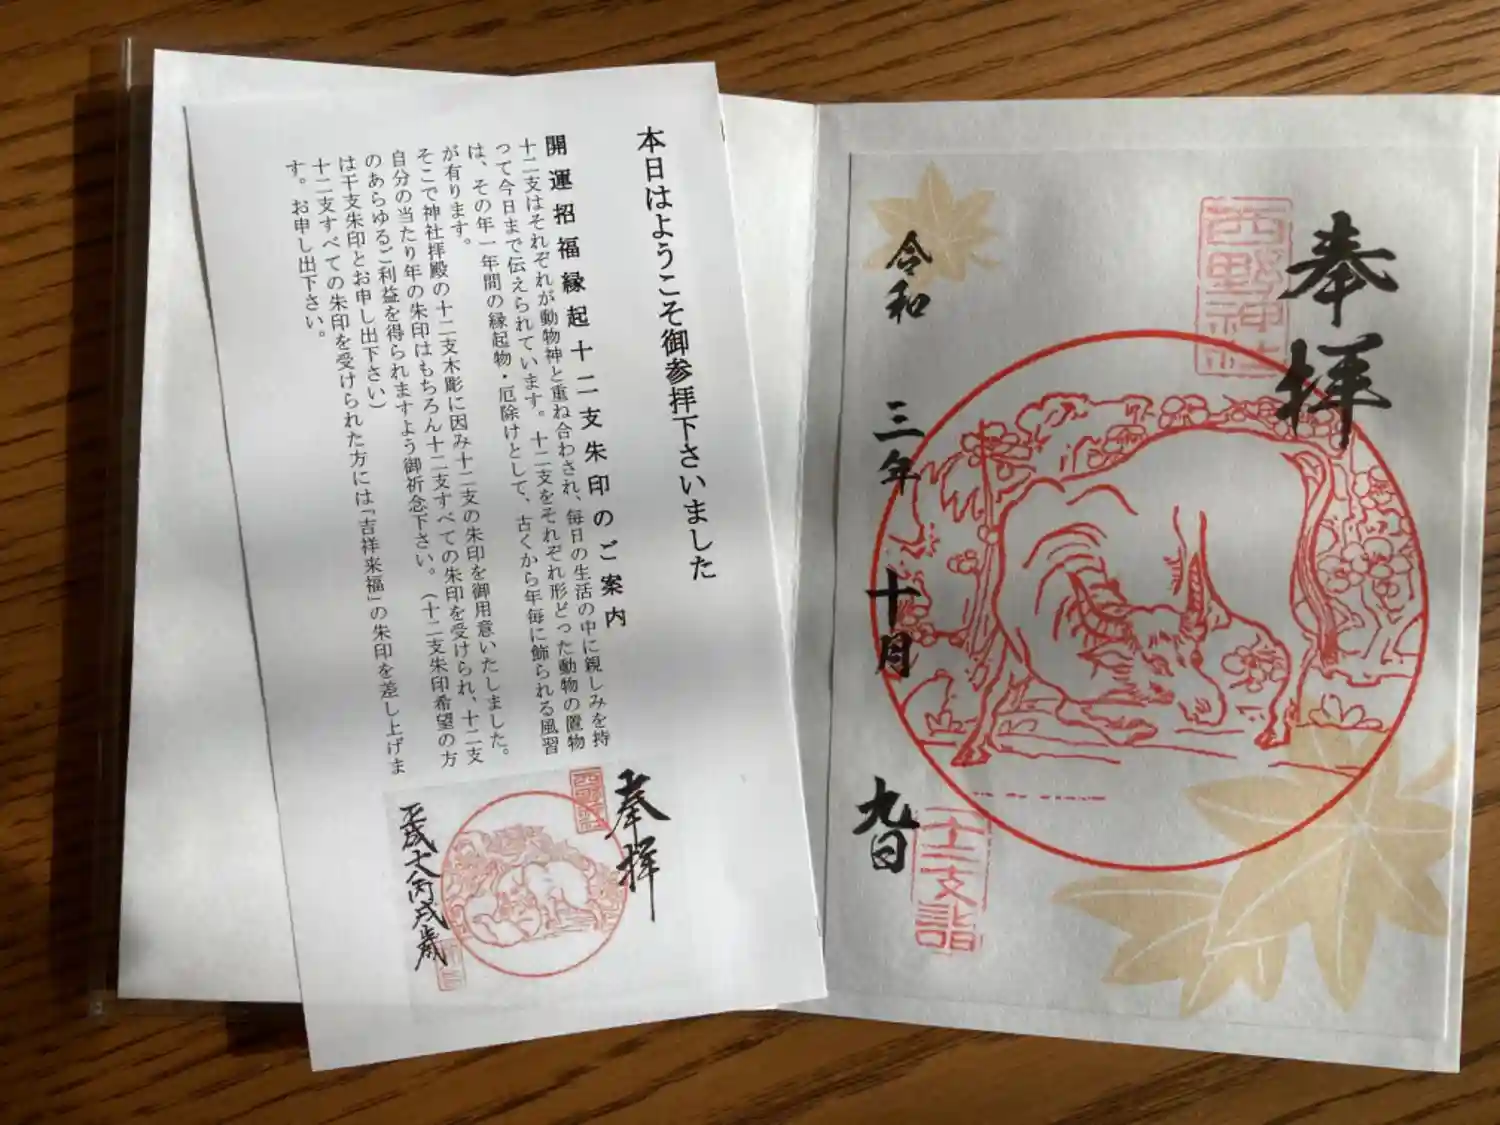 本日はようこそ御参拝下さいました
開運招福縁起十二支朱印のご案内
十二支はそれぞれが動物神と重ね合わされ、毎日の生活の中に親しみを持
って今日まで伝えられています。十二支をそれぞれ形どった動物の置物
は、その年一年間の縁起物・厄除けとして、古くから年毎に飾られる風習
が有ります。
そこで神社拝殿の十二支木彫に因み十二支の朱印を御用意いたしました。
自分の当たり年の朱印はもちろん十二支すべての朱印を受けられ、十二支
のあらゆるご利益を得られますよう御祈念下さい。（十二支朱印希望の方
は干支朱印とお申し出下さい）
十二支すべての朱印を受けられた方には「吉祥来福」の朱印を差し上げま
す。お申し出下さい。
奉拝
西野神社
平成十八丙戌歳
奉拝
西野神社
令和三年十月九日
十二支詣